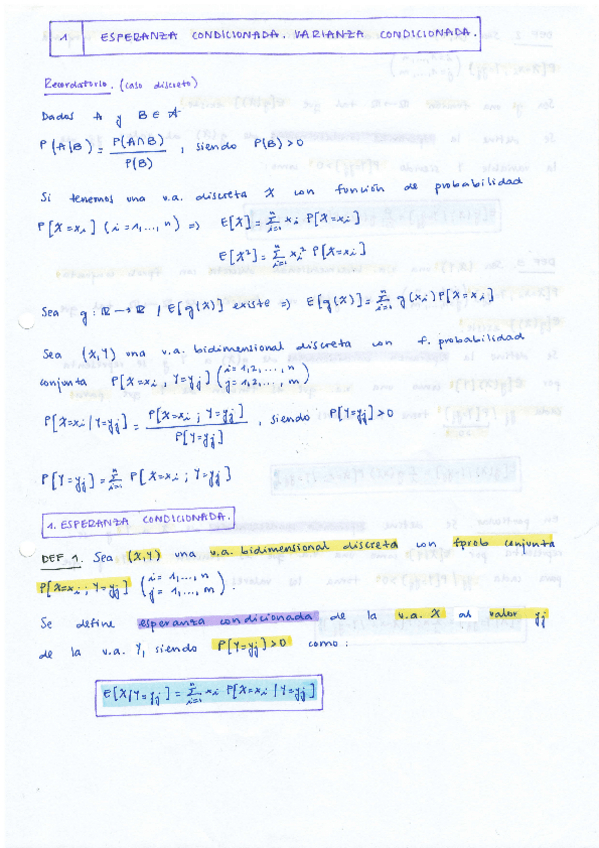 1 ESPERANZA CONDICIONADA. VARIANZA CONDICIONADA.
Recordatorio. (caso discreto)
Dados A y B ∈ A
P(A|B) = P(A∩B) / P(B) , siendo P(B)>0
Si tenemos una v.a. discreta X con función de probabilidad
P[X=xi] (i=1,...,n) => E[X] = Σ(i=1..n) xi P[X=xi]
E[X²] = Σ(i=1..n) xi² P[X=xi]
Sea g: R → R / E[g(X)] existe => E[g(X)] = Σ(i=1..n) g(xi) P[X=xi]
Sea (X,Y) una v.a. bidimensional discreta con f. probabilidad
conjunta P[X=xi, Y=yj] (i=1,2,...,n j=1,2,...,m)
P[X=xi|Y=yj] = P[X=xi; Y=yj] / P[Y=yj] , siendo P[Y=yj]>0
P[Y=yj] = Σ(i=1..n) P[X=xi; Y=yj]
1. ESPERANZA CONDICIONADA.
DEF 1. Sea (X,Y) una v.a. bidimensional discreta con fprob conjunta
P[X=xi; Y=yj] (i=1,...,n j=1,...,m).
Se define esperanza condicionada de la v.a. X al valor yj
de la v.a. Y, siendo P[Y=yj]>0 como:
E[X|Y=yj] = Σ(i=1..n) xi P[X=xi|Y=yj]